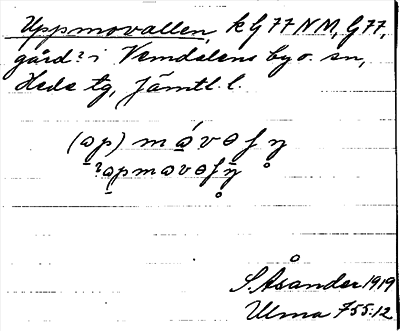 Uppmovallen, k G 77 NM, G 77,
gård? i Vemdalens by o. sn,
Hede tg, Jämtl. l.
S Åsander 1919
Ulma 755:12